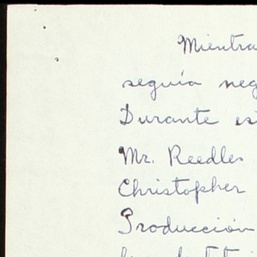 Mientra
seguía neg
Durante es
Mr. Reedles
Christopher
Producción